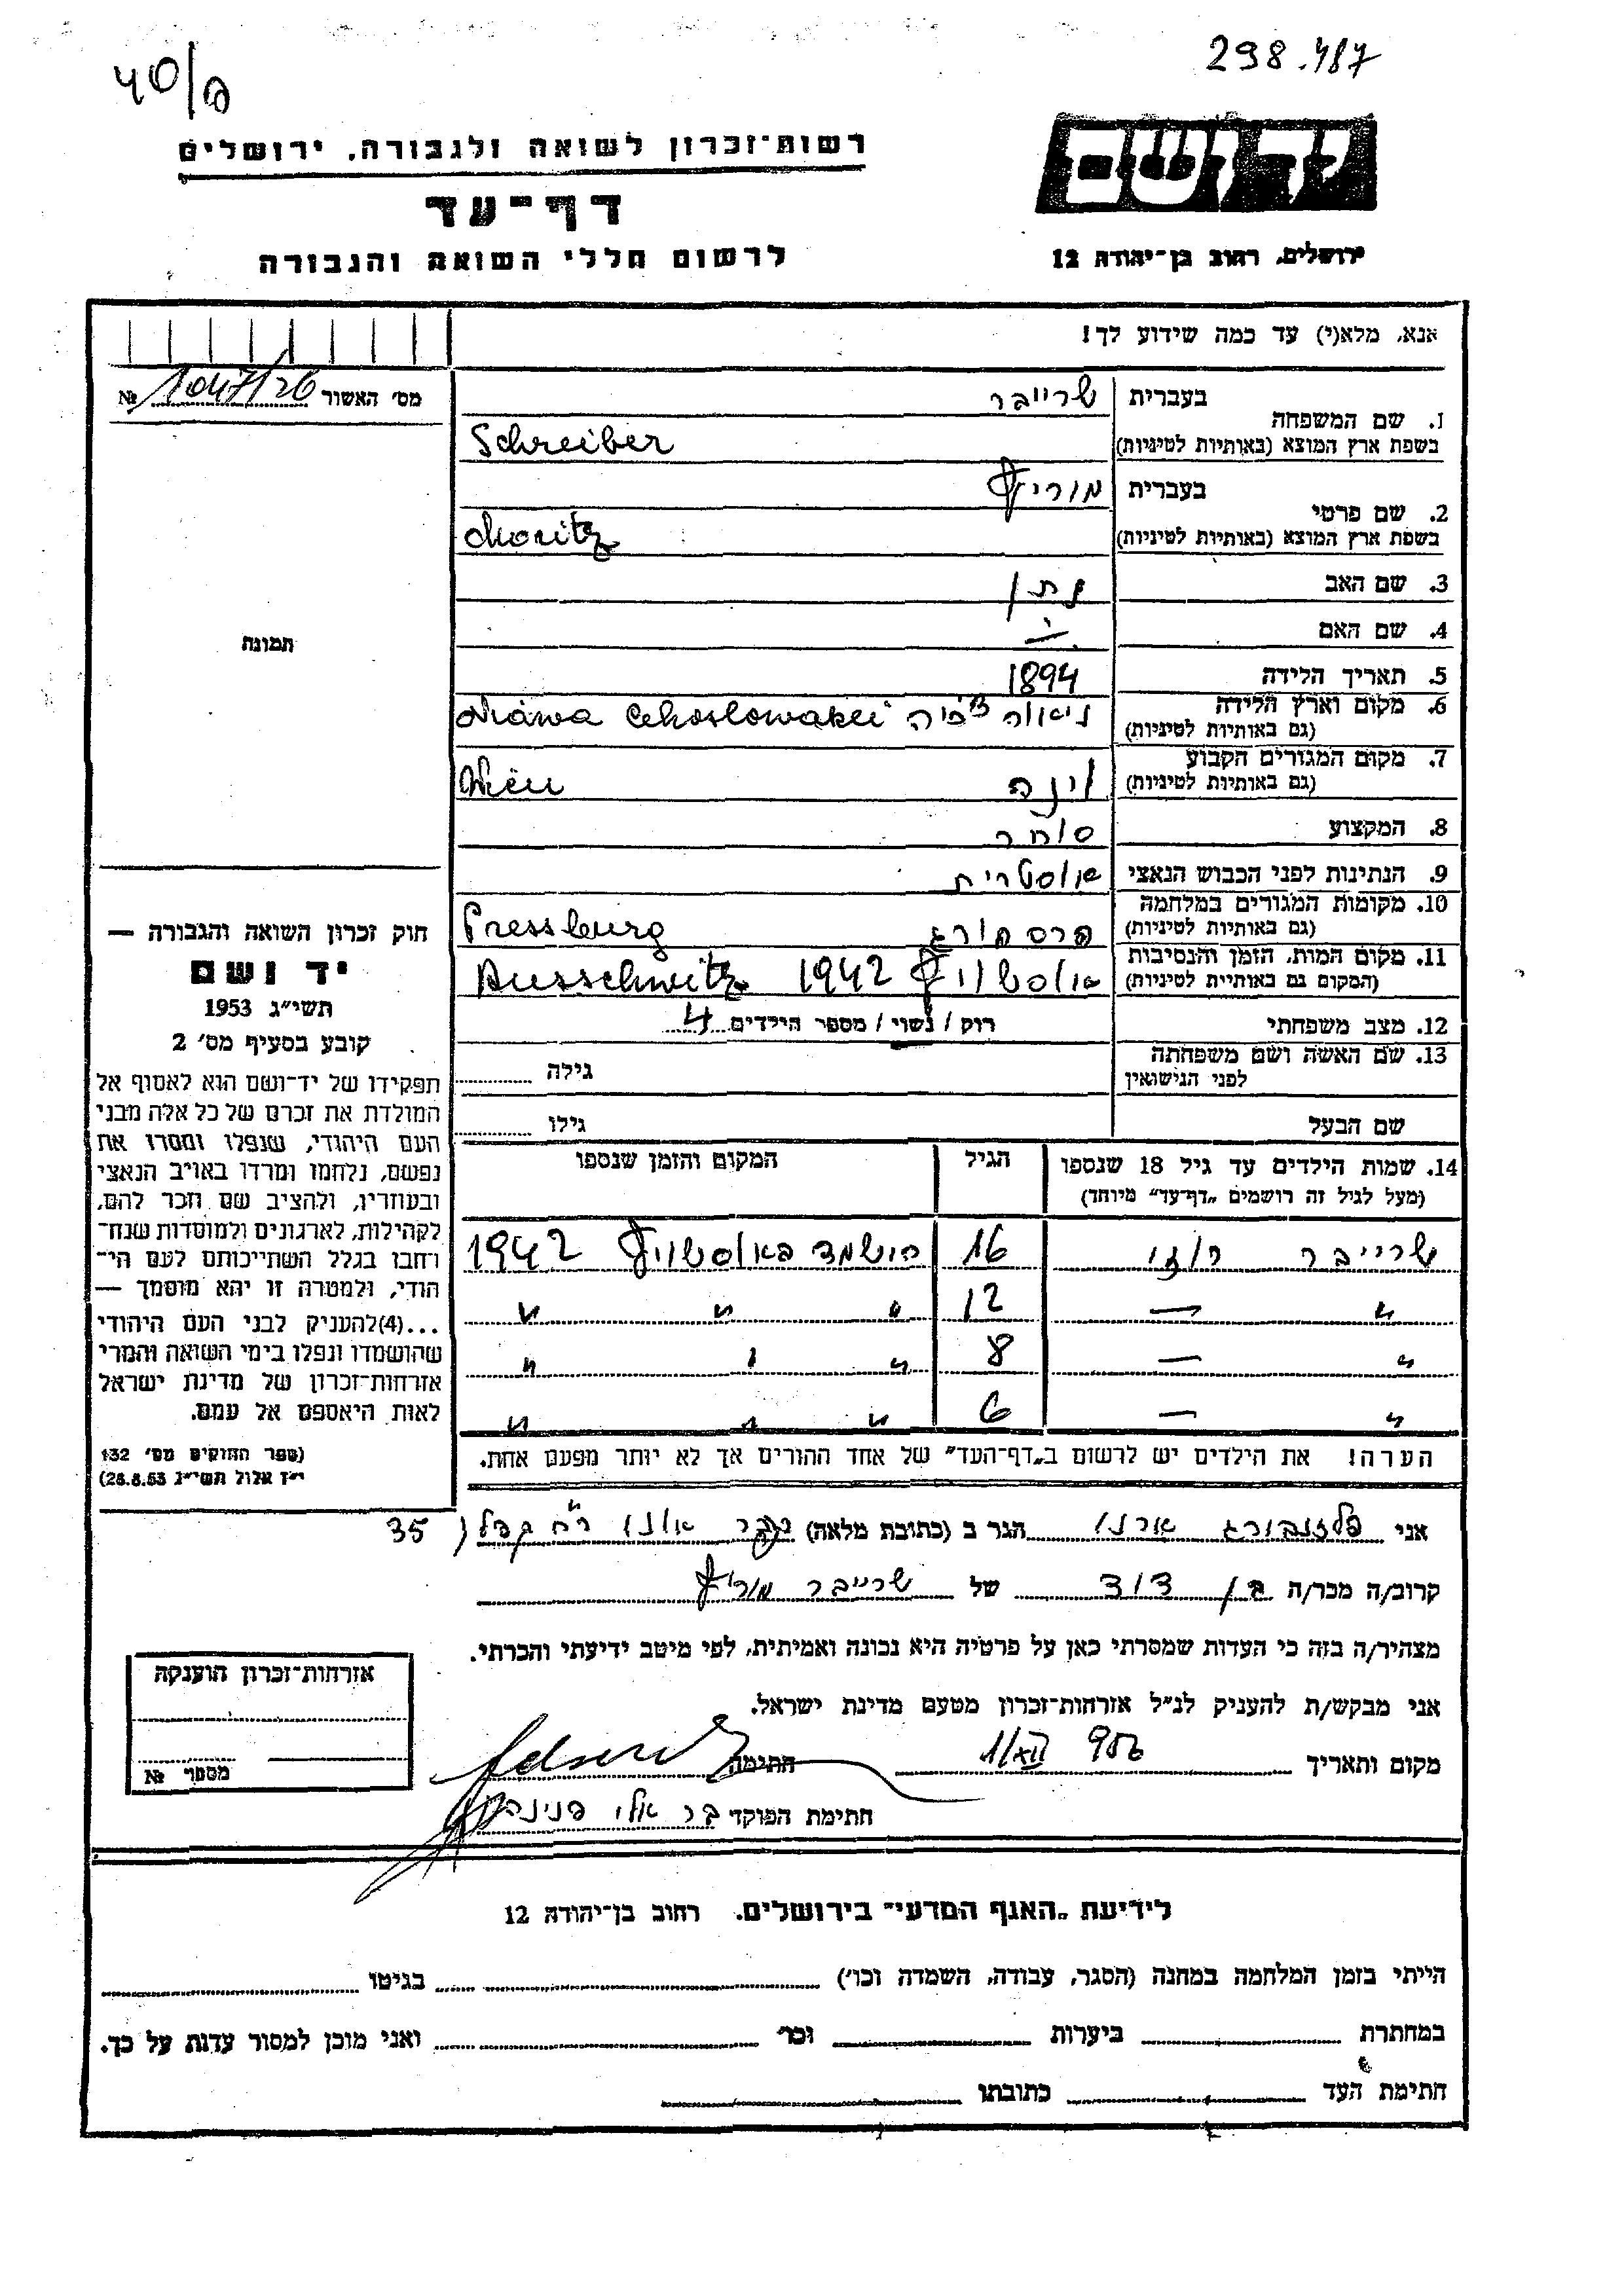 298.487
40/
רשות־זכרון לשואה ולגבורה, ירושלים
יד ושם
דף־עד
לרשום חללי השואה והגבורה
ירושלים, רחוב בן־יהודה 12
אנא, מלא(י) עד כמה שידוע לך!
מס׳ האשור 1047/26 №
תמונה
1. שם המשפחה בעברית שרייבר
בשפת ארץ המוצא (באותיות לטיניות) Schreiber
2. שם פרטי בעברית מוריץ
בשפת ארץ המוצא (באותיות לטיניות) Moritz
3. שם האב נתן
4. שם האם —
5. תאריך הלידה 1894
6. מקום וארץ הלידה
(גם באותיות לטיניות)
7. מקום המגורים הקבוע וינה Wien
(גם באותיות לטיניות)
8. המקצוע סוחר
9. הנתינות לפני הכבוש הנאצי אוסטרית
10. מקומות המגורים במלחמה פרסבורג Pressburg
(גם באותיות לטיניות)
11. מקום המות, הזמן והנסיבות אוסשויץ 1942 Ausschwitz
(המקום גם באותיות לטיניות)
12. מצב משפחתי רוק / נשוי / מספר הילדים 4
13. שם האשה ושם משפחתה
לפני הנישואין גילה
שם הבעל גילו
14. שמות הילדים עד גיל 18 שנספו הגיל המקום והזמן שנספו
(מעל לגיל זה רושמים „דף־עד״ מיוחד)
שרייבר רוזי 16 הושמד באוסשויץ 1942
״ — 12 ״ ״ ״
״ — 8 ״ ״ ״
״ — 6 ״ ״ ״
הערה! את הילדים יש לרשום ב„דף־העד״ של אחד ההורים אך לא יותר מפעם אחת.
חוק זכרון השואה והגבורה —
יד ושם
תשי״ג 1953
קובע בסעיף מס׳ 2
תפקידו של יד־ושם הוא לאסוף אל
המולדת את זכרם של כל אלה מבני
העם היהודי, שנפלו ומסרו את
נפשם, נלחמו ומרדו באויב הנאצי
ובעוזריו, ולהציב שם וזכר להם,
לקהילות, לארגונים ולמוסדות שנח־
רבו בגלל השתייכותם לעם הי־
הודי, ולמטרה זו יהא מוסמך —
...(4) להעניק לבני העם היהודי
שהושמדו ונפלו בימי השואה והמרי
אזרחות־זכרון של מדינת ישראל
לאות היאספם אל עמם.
(ספר החוקים מס׳ 132
י״ז אלול תשי״ג 28.8.53)
אני פלזנבורג ארנו הגר ב (כתובת מלאה) אונו 35
קרוב/ה מכר/ה בן דוד של שרייבר מוריץ
מצהיר/ה בזה כי העדות שמסרתי כאן על פרטיה היא נכונה ואמיתית, לפי מיטב ידיעתי והכרתי.
אני מבקש/ת להעניק לנ״ל אזרחות־זכרון מטעם מדינת ישראל.
מקום ותאריך 1/XII 956 חתימה
חתימת הפוקד
אזרחות־זכרון הוענקה
מספר №
לידיעת „האגף המדעי״ בירושלים. רחוב בן־יהודה 12
הייתי בזמן המלחמה במחנה (הסגר, עבודה, השמדה וכו׳) בגיטו
במחתרת ביערות וכו׳ ואני מוכן למסור עדות על כך.
חתימת העד כתובתו